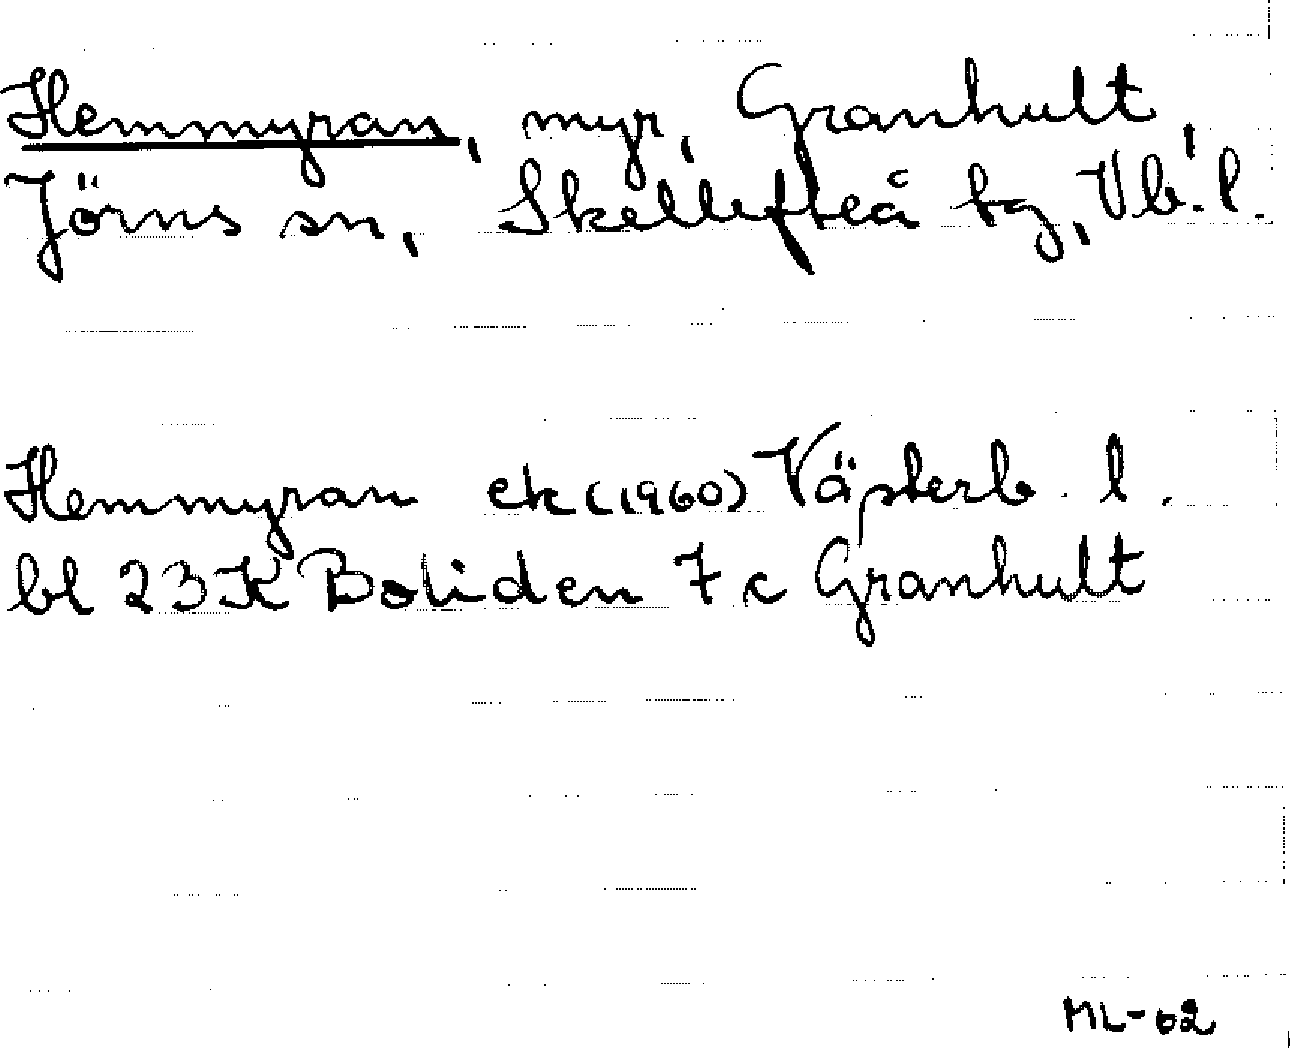 Hemmyran, myr, Granhult,
Jörns sn, Skellefteå tg, Vb. l.
Hemmyran ek (1960) Västerb. l.
bl 23K Boliden 7c Granhult
ML-62